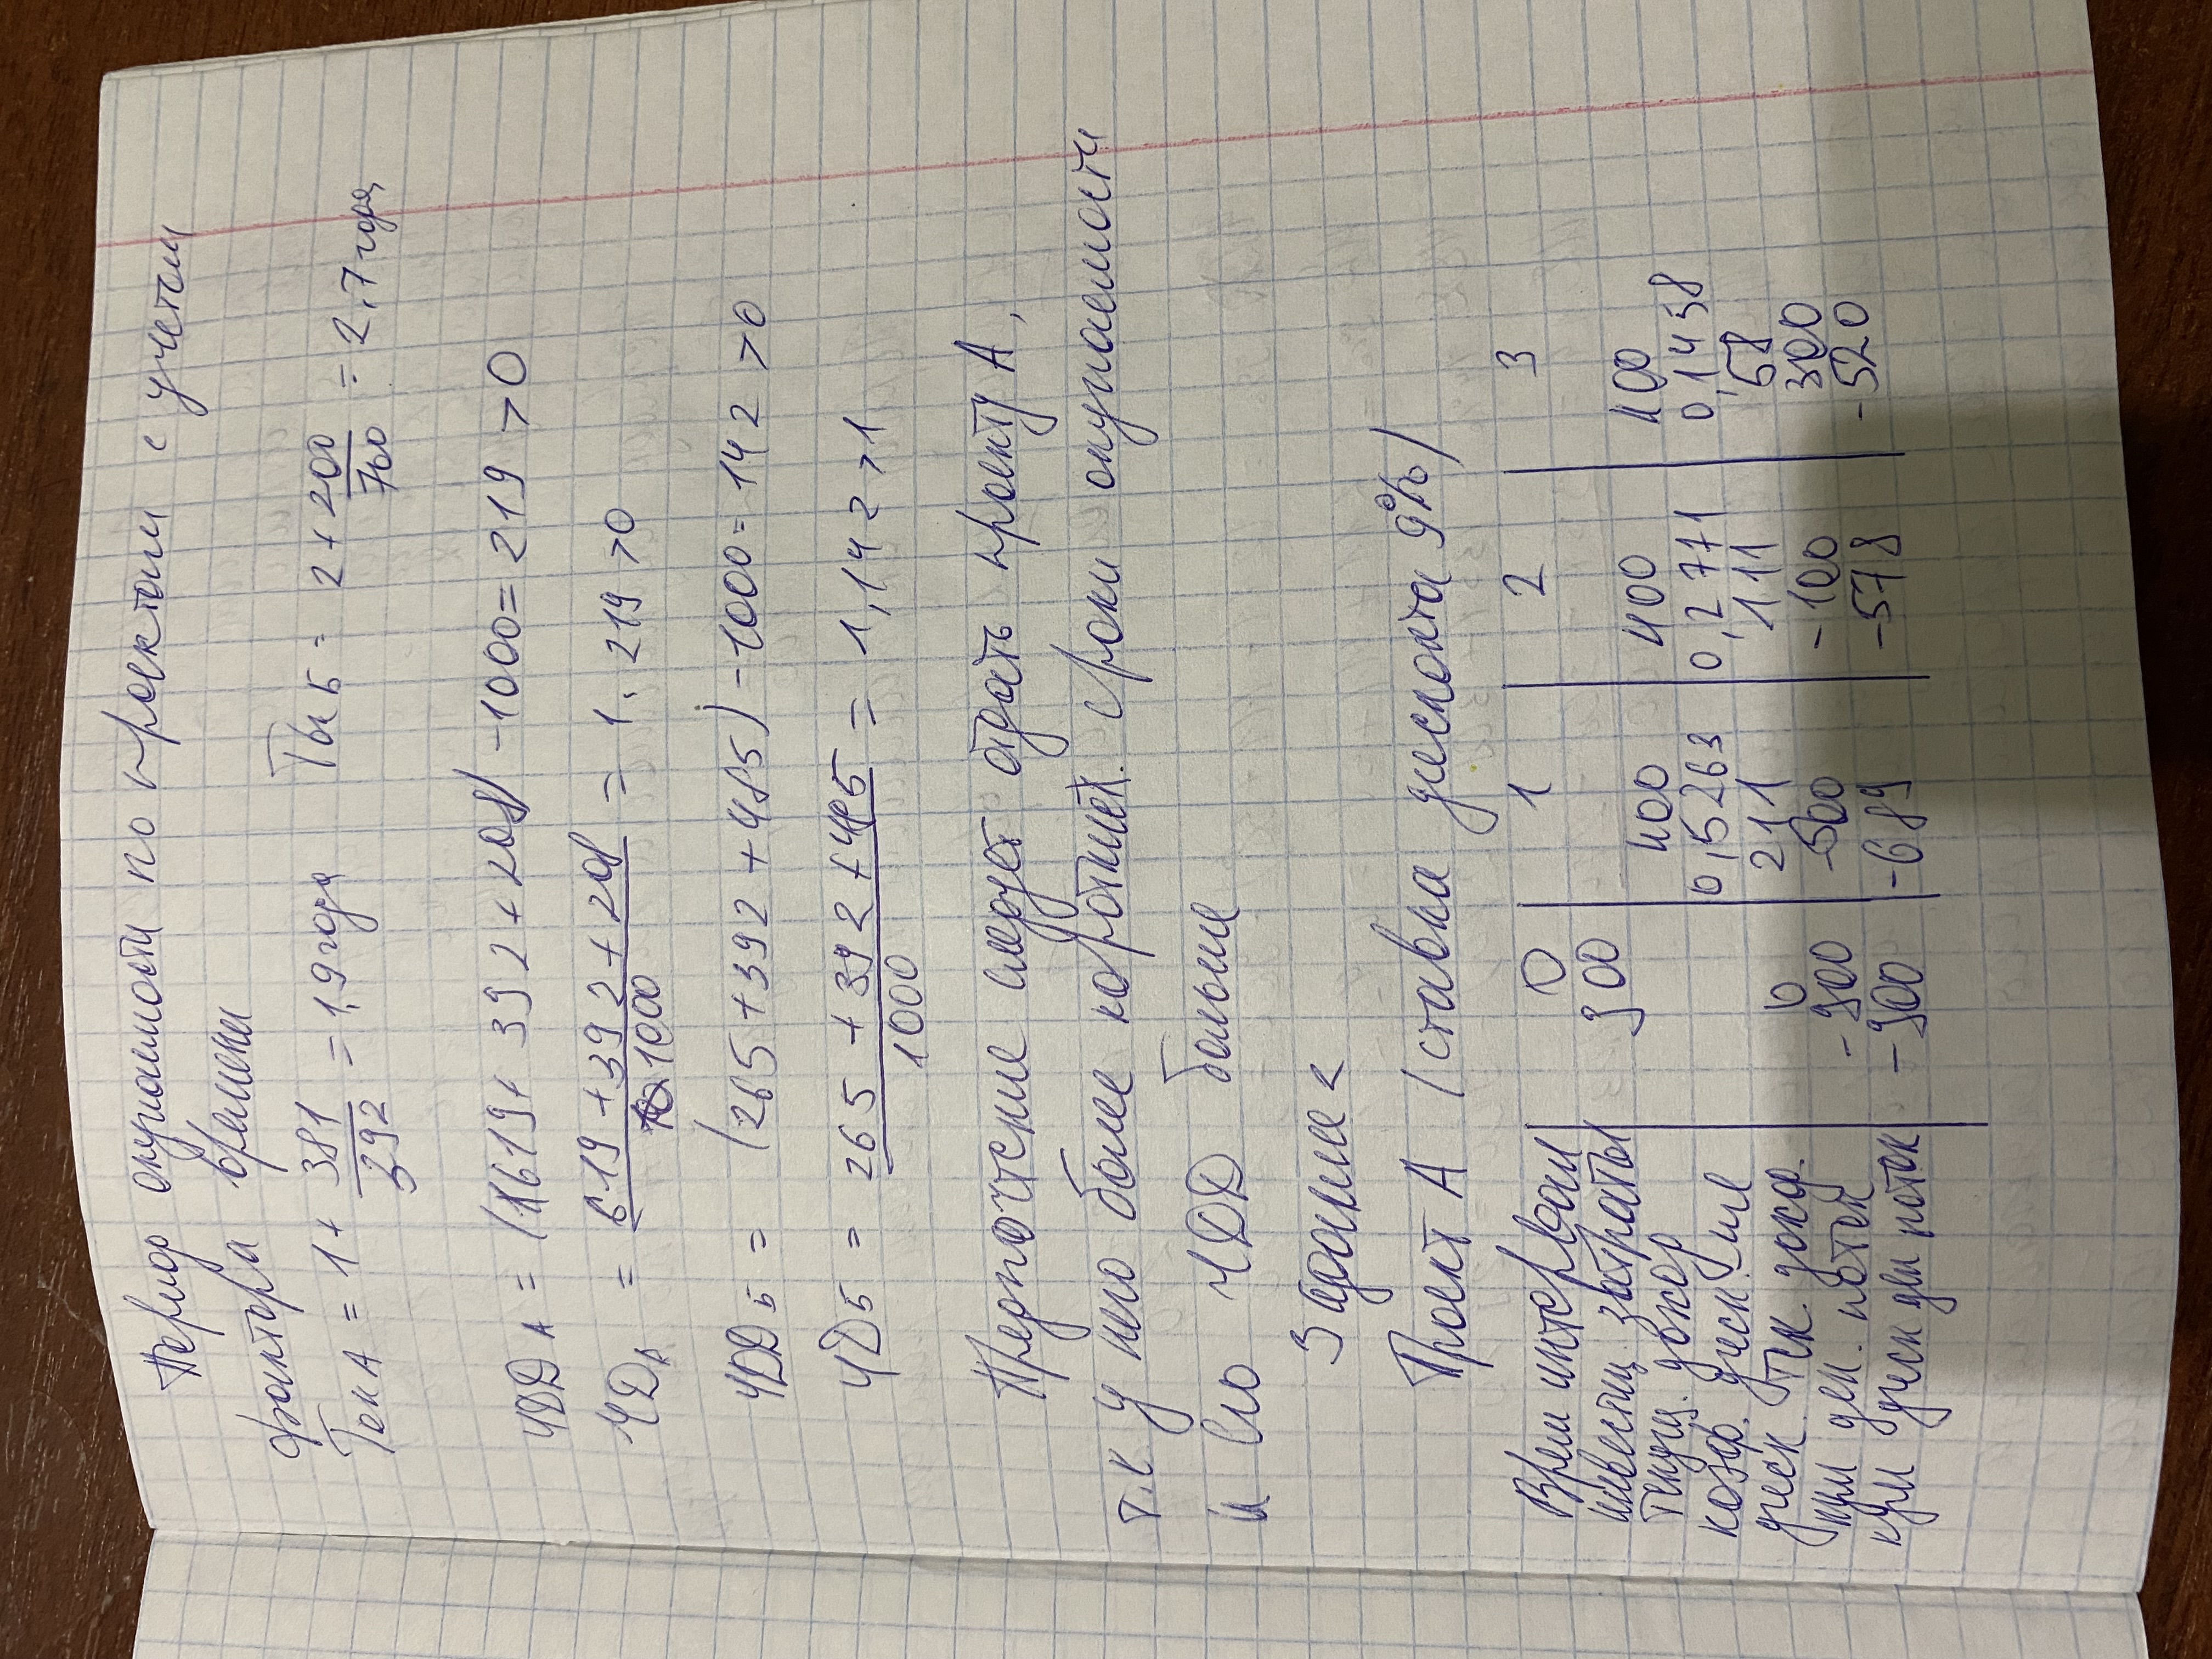 Период окупаемости по проектам с учетом
фактора времени
Ток А = 1 + 381/392 = 1,9 года Ток Б = 2 + 200/760 = 2,7 года
ЧДД А = (1619 + 392 + 208) - 1000 = 219 > 0
ЧД А = 619 + 392 + 208 / 1000 = 1.219 > 0
ЧДД Б = (265 + 392 + 485) - 1000 = 142 > 0
ЧД Б = 265 + 392 + 485 / 1000 = 1,142 > 1
Предпочтение следует отдать проекту А,
т.к у него более короткие сроки окупаемости
и его ЧДД больше
Задание 2
Проект А (ставка дисконта 9%)
Врем интервал 0 1 2 3
инвестиц затраты 900
текущ. доход 400 400 400
коэф. диск.-ие 0,5263 0,2771 0,1458
диск. тек. доход. 0 211 111 58
кум ден. поток -900 -500 -100 300
кум диск ден поток -900 -689 -578 -520